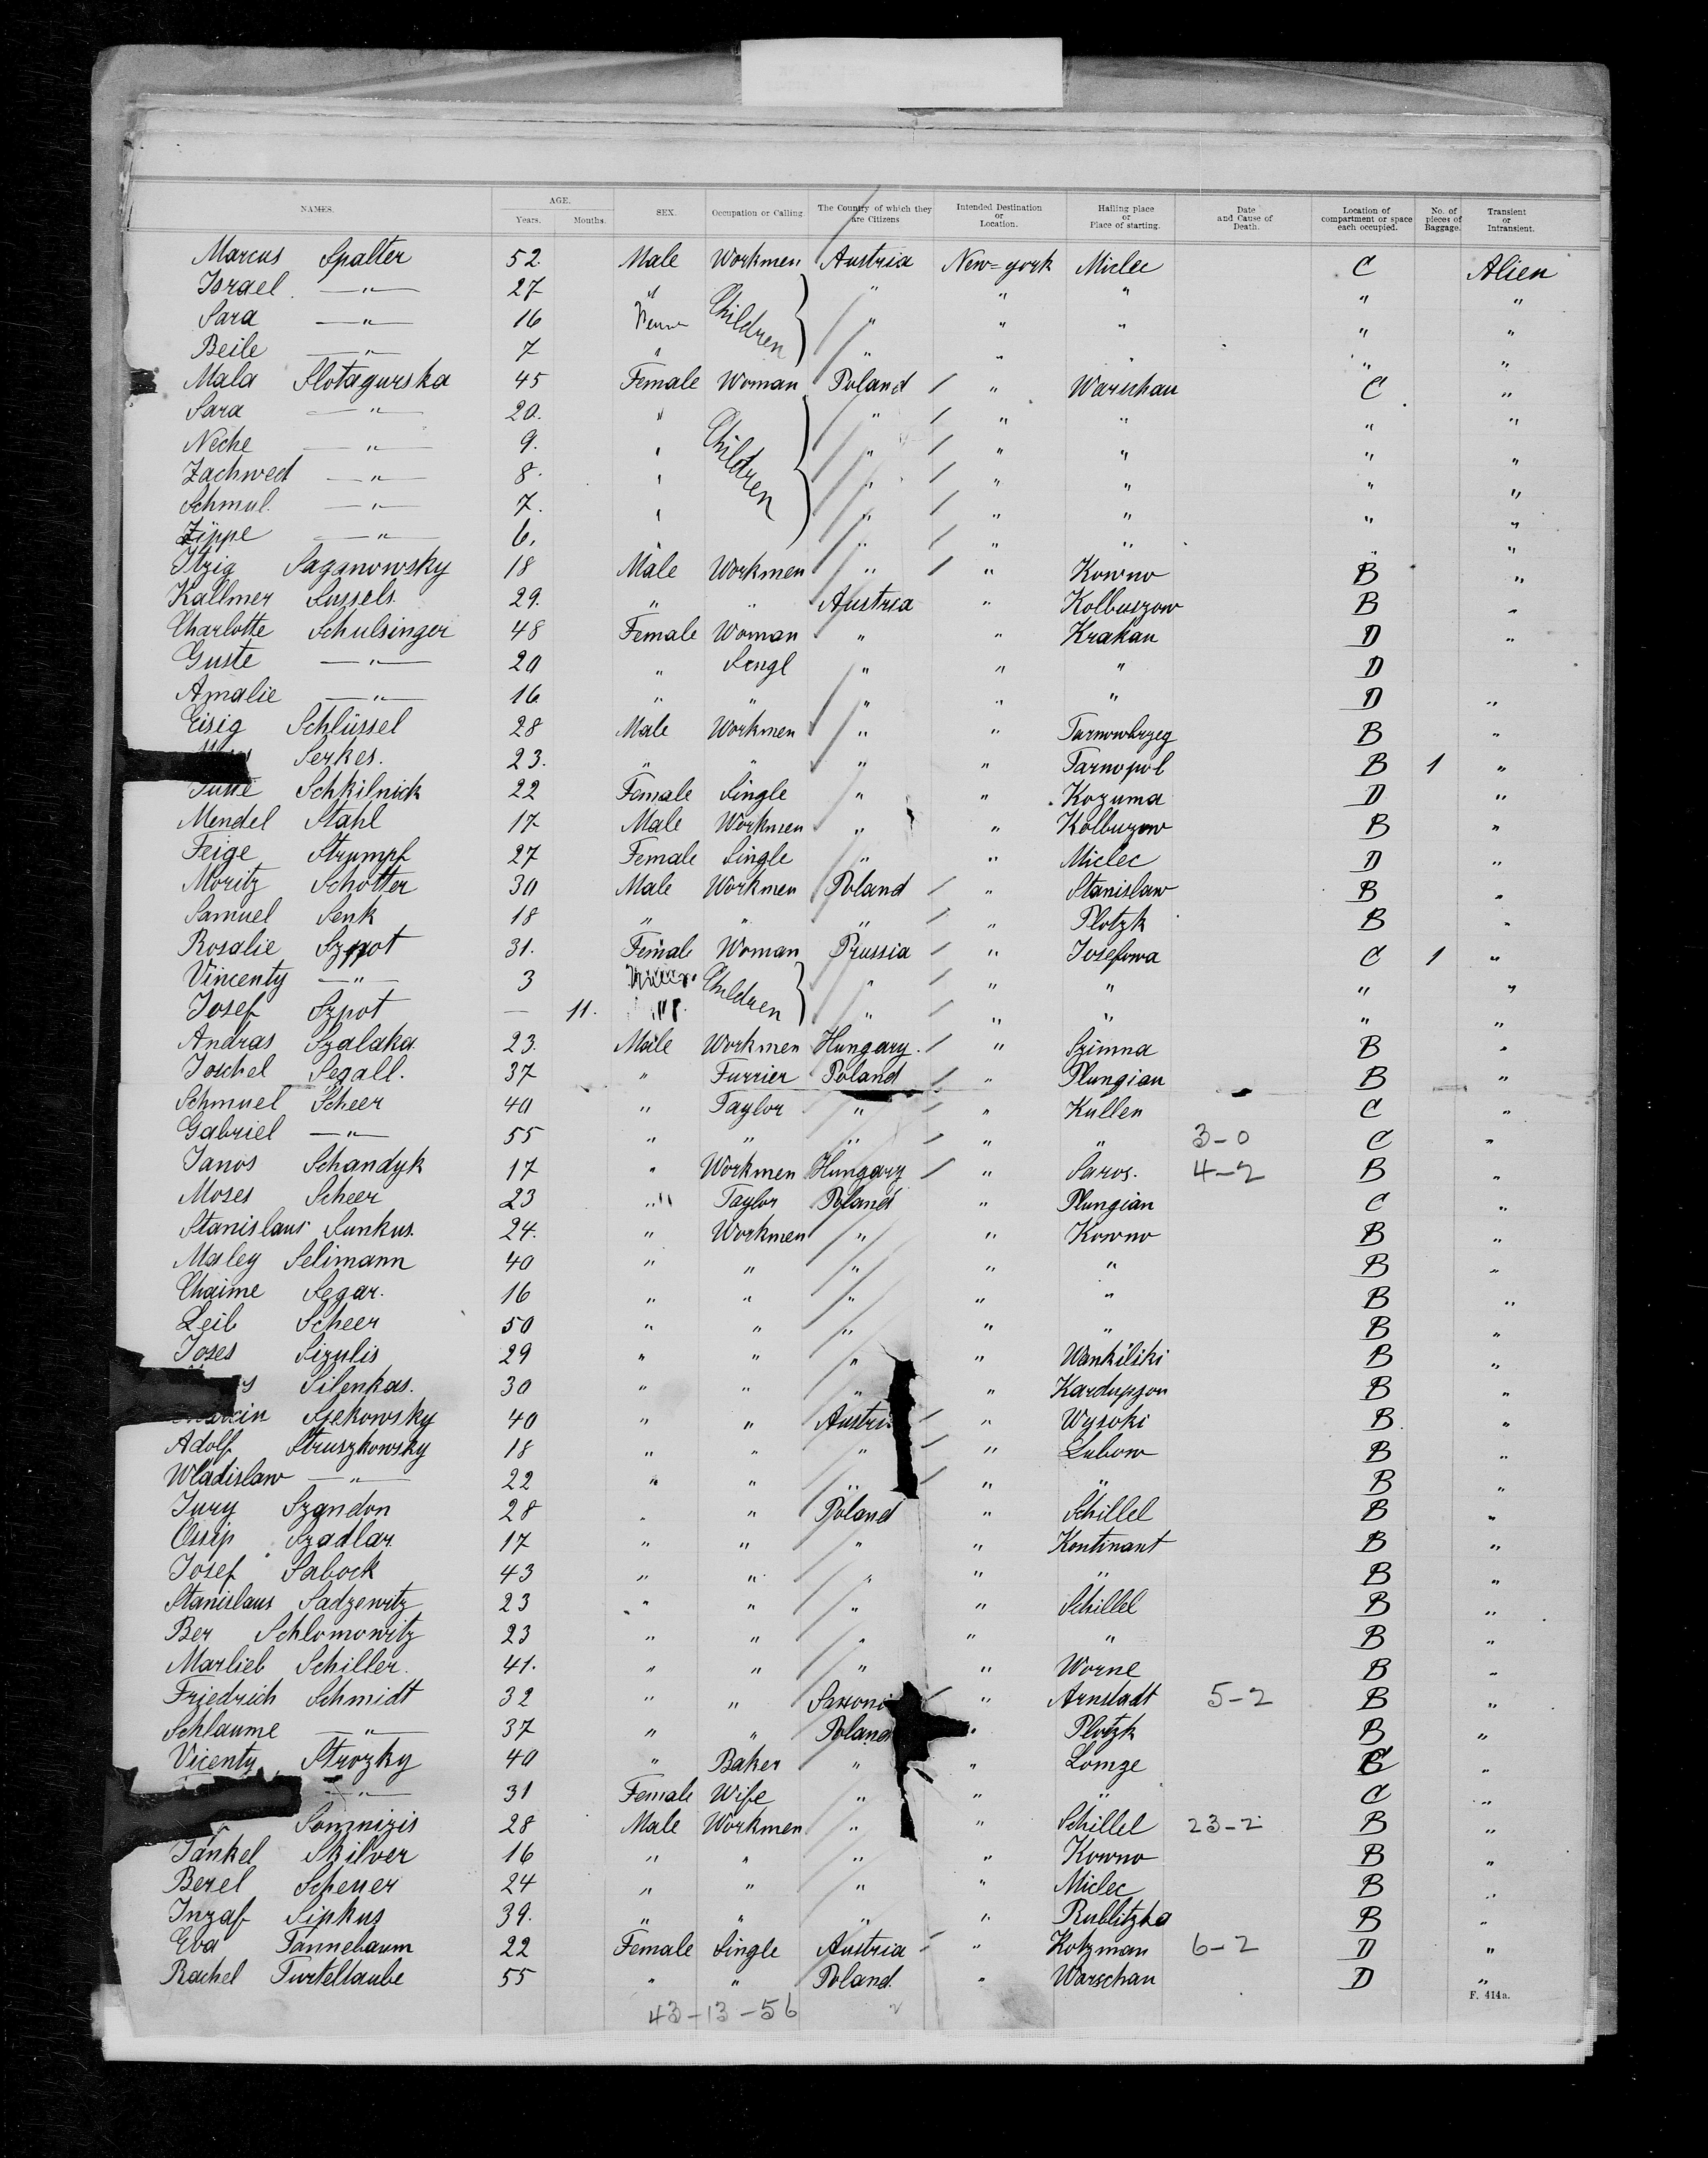 NAMES. AGE. Years. Months. SEX. Occupation or Calling. The Country of which they are Citizens Intended Destination or Location. Hailing place or Place of starting. Date and Cause of Death. Location of compartment or space each occupied. No. of pieces of Baggage. Transient or Intransient.
Marcus Spalter 52. Male Workmen Austria New-york Mielec C Alien
Israel —"— 27 " Children " " " " "
Sara —"— 16 " " " " "
Beile —"— 7 " " " " " "
Mala Slotagurska 45 Female Woman Poland / " Warschau C "
Sara —"— 20. " Children " / " " " "
Neche —"— 9. " " / " " " "
Zachwed —"— 8. " " / " " " "
Schmul —"— 7. " " / " " " "
Zippe —"— 6. " " / " " " "
Itzig Saganowsky 18 Male Workmen " / " Kowno B "
Kallmer Sussels 29. " " Austria " Kolbuszow B "
Charlotte Schulsinger 48 Female Woman " " Krakau D "
Guste —"— 20 " Sengl " " " D
Amalie —"— 16 " " " " " D "
Eisig Schlüssel 28 Male Workmen " " Tarnowbrzeg B "
Serkes. 23. " " " " Tarnopol B 1 "
Schkilnick 22 Female Single " " Kozuma D "
Mendel Stahl 17 Male Workmen " " Kolbuzow B "
Feige Strumpf 27 Female Single " " Mielec D "
Moritz Schotter 30 Male Workmen Poland / " Stanislaw B "
Samuel Senk 18 " " " / " Plotzk B "
Rosalie Szpot 31. Female Woman Prussia / " Josefowa C 1 "
Vincenty —"— 3 Children " / " " " "
Josef Szpot — 11. " / " " " "
Andras Szalaka 23. Male Workmen Hungary. / " Szimna B "
Joschel Segall. 37 " Furrier Poland / " Plungian B "
Schmuel Scheer 40 " Taylor " / " Kullen C "
Gabriel —"— 55 " " " / " " 3-0 C "
Janos Schandyk 17 " Workmen Hungary / " Saros. 4-2 B "
Moses Scheer 23 " Taylor Poland " Plungian C "
Stanislaus Sunkus. 24. " Workmen " " Kowno B "
Maley Selimann 40 " " " " " B "
Chaime Segar. 16 " " " " " B "
Leib Scheer 50 " " " " " B "
Joses Sizulis 29 " " " " Wankiliki B "
Silenkas. 30 " " " " Kardupzon B "
Szekowsky 40 " " Austri / " Wysoki B "
Adolf Struszkowsky 18 " " " / " Lubow B "
Wladislaw —"— 22 " " " / " " B "
Jury Szandon 28 " " Poland " Schillel B "
Ossip Szadlar 17 " " " " Kontinant B "
Josef Sabock 43 " " " " " B "
Stanislaus Sadzewitz 23 " " " " Schillel B "
Ber Schlomowitz 23 " " " " " B "
Marlieb Schiller. 41. " " " " Worne B "
Friedrich Schmidt 32 " " Saxoni / " Arnstadt 5-2 B "
Schlaume —"— 37 " " Poland " Plotzk B "
Vicenty Strozky 40 " Baker " " Lomze C "
—"— 31 Female Wife " " " C "
Somnizis 28 Male Workmen " " Schillel 23-2 B "
Jankel Skilver 16 " " " " Kowno B "
Berel Scheuer 24 " " " " Mielec B "
Inzaf Sipkus 39. " " " " Rublitzka B "
Eva Tannebaum 22 Female Single Austria / " Kotzman 6-2 D "
Rachel Turteltaube 55 " " Poland. " Warschau D "
F. 414a.
43-13-56